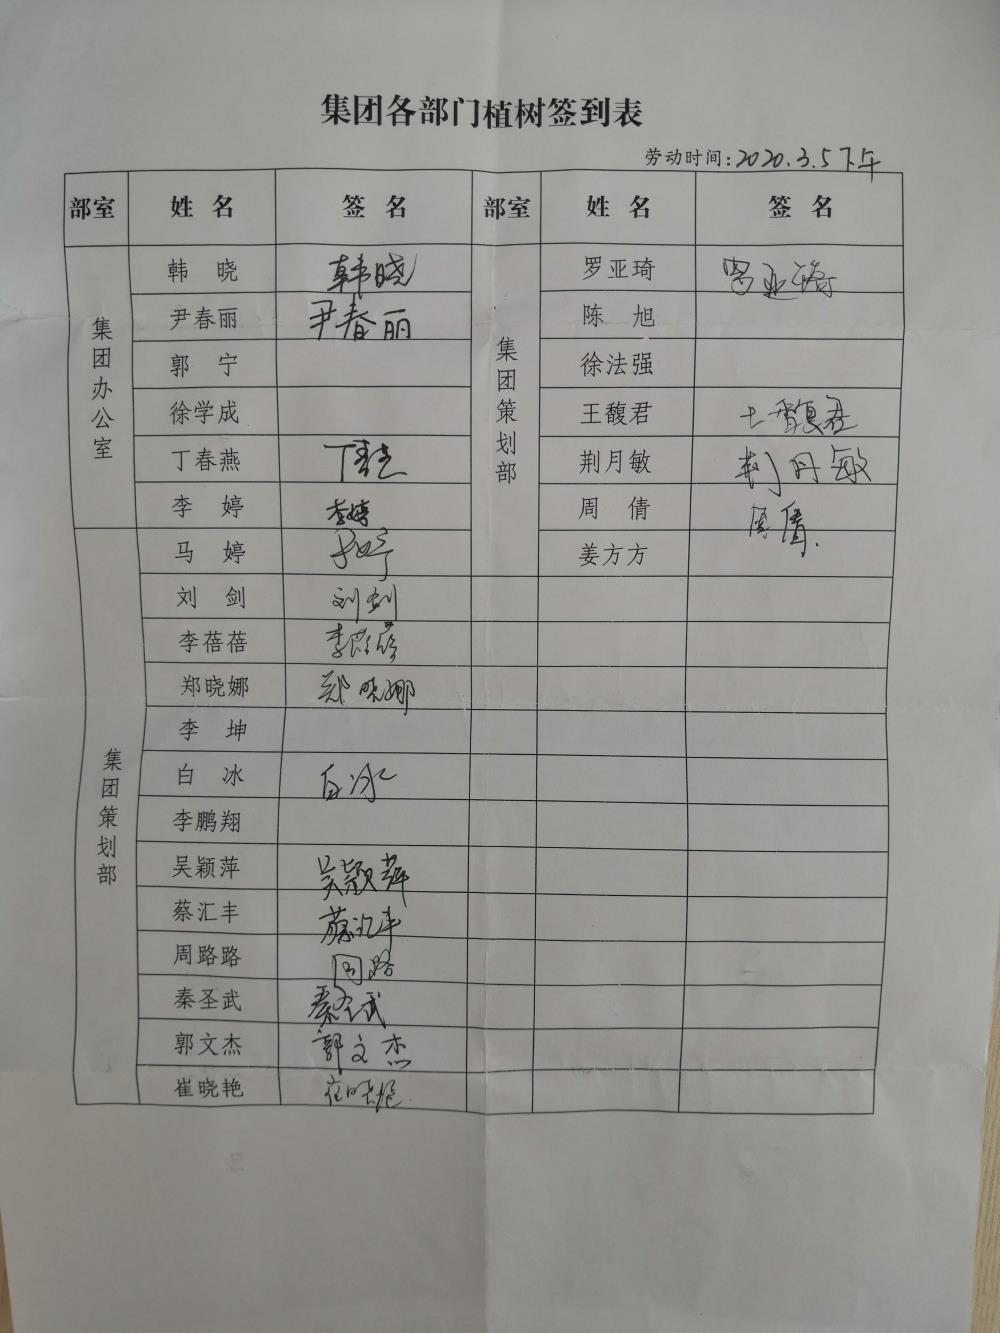 集团各部门植树签到表
劳动时间:2020.3.5下午
部室 姓名 签名 部室 姓名 签名
集团办公室
韩晓 韩晓
尹春丽 尹春丽
郭宁
徐学成
丁春燕
李婷 李婷
集团策划部
马婷 马婷
刘剑 刘剑
李蓓蓓 李蓓蓓
郑晓娜 郑晓娜
李坤
白冰 白冰
李鹏翔
吴颖萍 吴颖萍
蔡汇丰 蔡汇丰
周路路 周路
秦圣武 秦圣武
郭文杰 郭文杰
崔晓艳 崔晓艳
集团策划部
罗亚琦 罗亚琦
陈旭
徐法强
王馥君 王馥君
荆月敏 荆月敏
周倩 周倩.
姜方方